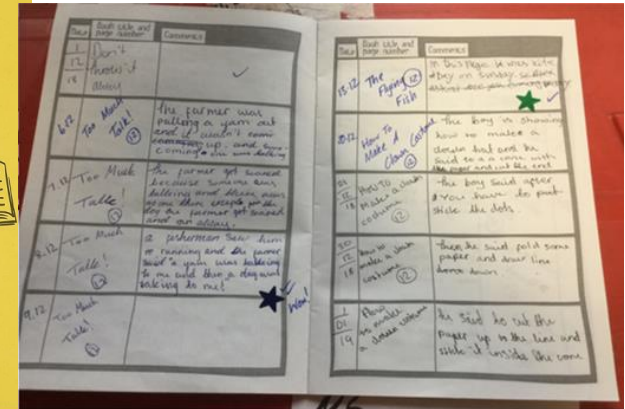 Date
Book title and
page number
Comments
1
12
18
Don't
throw it
away
6.12
Too Much
Talk!
12
the farmer was
pulling a yam out
and it wasn't
up, and
coming.
7.12
Too Much
Talk!
12
The farmer got scared
because
talking and there was
the farmer got scared
and
away.
8.12
Too Much
Talk!
12
a fisherman saw him
running and the farmer
said a yam was talking
to me and then a dog was
talking to me!
Wow!
9.12
Too Much
Talk!
12
Date
Book title and
page number
Comments
13.12
The
Flying
Fish
12
In this page
on Sunday
20.12
How To
Make A
Clown Costume
12
the boy is showing
how to make a
clown hat and he
said to a cone with
the paper and cut the end
12
18
How to
Make a clown
costume
12
the boy said after
you have to put
stick the dots.
30
12
18
how to
make a clown
costume
12
then he said fold some
paper and draw line
down.
1
01
19
How
to make
a clown costume
he said to cut the
paper up to the line and
stick it inside the cone